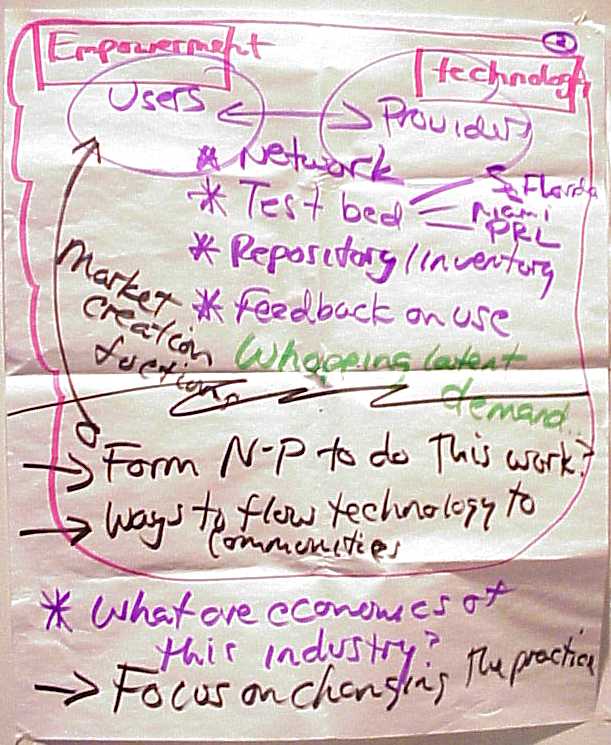 2
Empowerment
technology
Users
Providers
* Network
* Test bed
S. Florida
Miami
PRL
* Repository/inventory
* Feedback on use
Market
creation
function
Whopping latent
demand..
→ Form N-P to do This work?
→ Ways to flow technology to
communities
* What are economics of
this industry?
→ Focus on changing The practice